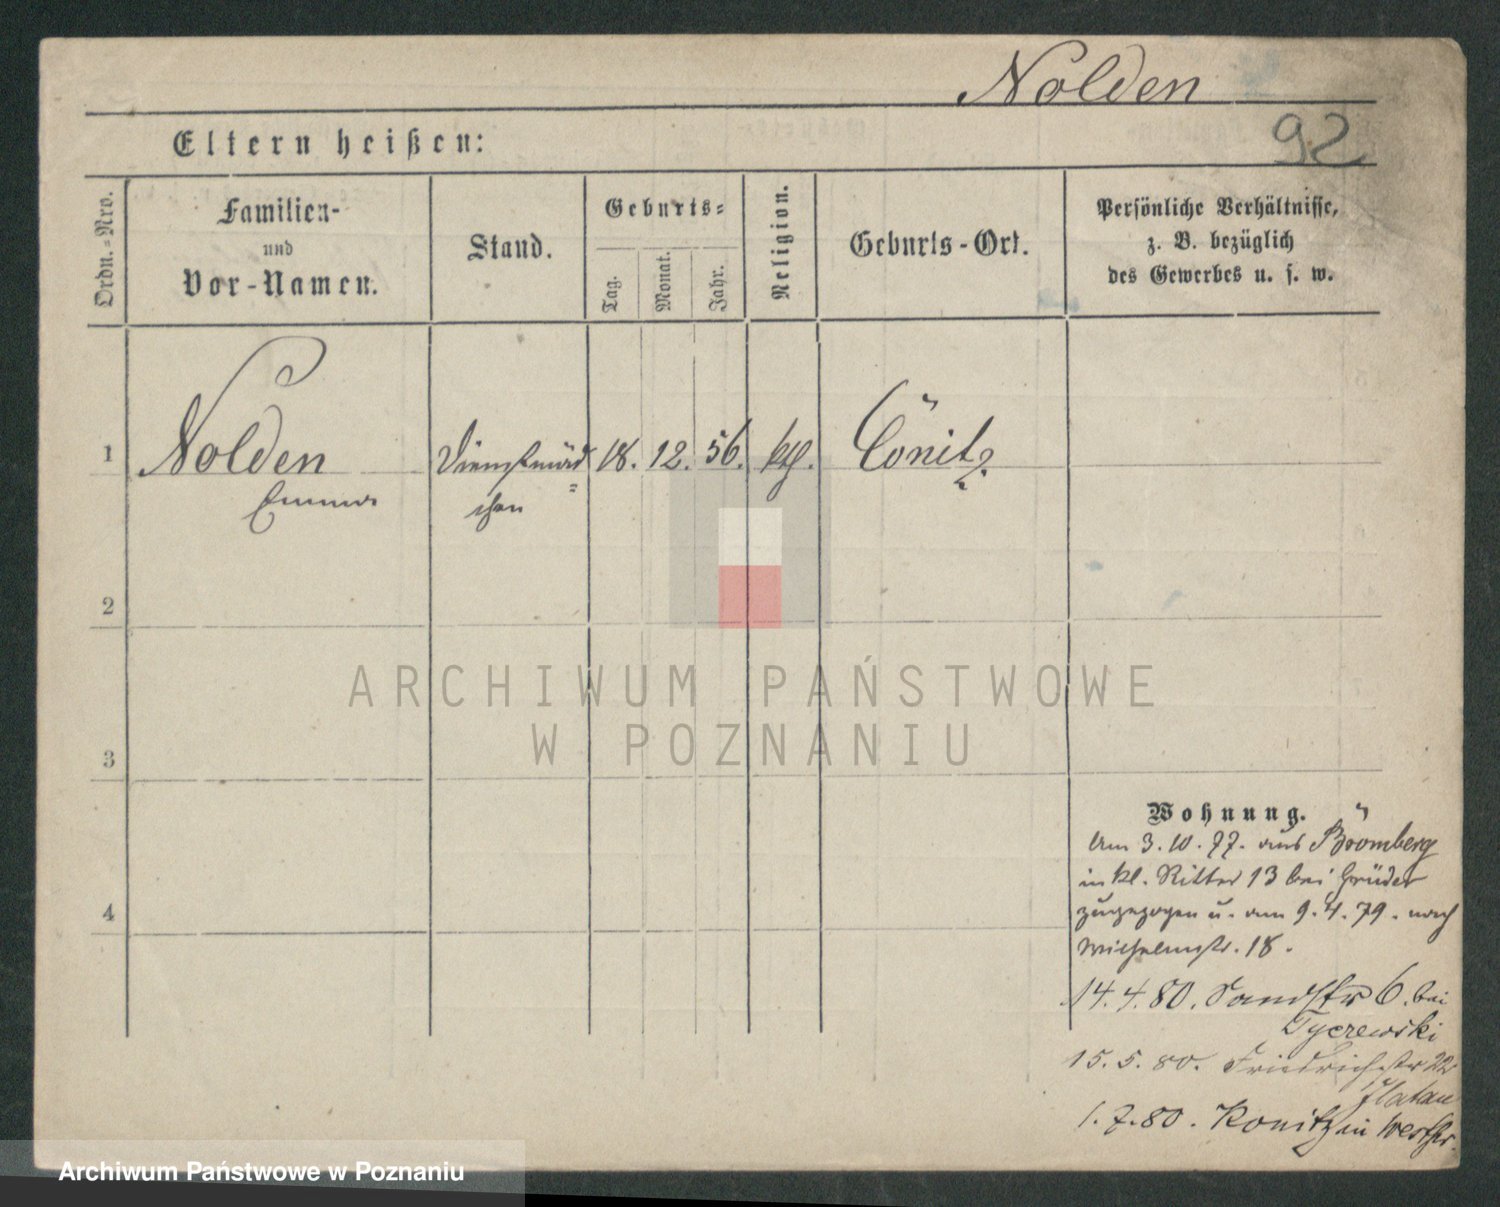 Nolden
92
Eltern heißen:
Ordn.-Nro.
Familien-
und
Vor-Namen.
Stand.
Geburts-
Tag.
Monat.
Jahr.
Religion.
Geburts-Ort.
Persönliche Verhältnisse,
z. B. bezüglich
des Gewerbes u. s. w.
1 Nolden Dienstmäd= 18. 12. 56. kth. Conitz
Emma chen
2
3
4
Wohnung.
Am 3.10.77. aus Bromberg
in kl. Ritter 13 bei
zugezogen u. am 9.4.79. nach
Wilhelmstr. 18.
14.4.80. Sandstr 6. bei
Tyczewski
15.5.80. Friedrichstr 22
1.7.80. Konitz in Westpr.
ARCHIWUM PAŃSTWOWE
W POZNANIU
Archiwum Państwowe w Poznaniu